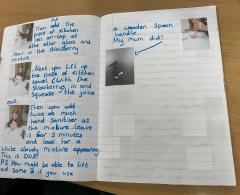 Then add the
piece of kitchen
roll on-top
the other glass and
Pour in the strawberry
mixture
. Next you lift up
the piece of kitchen
towel (with the
Strawberrys, in and
Squeeze the juice
out
Then you add
twice as much
hand sanitiser as
the mixture leave
it for 5 minutes
and look for a
White cloudy mixture appearing
This is DNA!
P.S You might be able to lift
out some if you use
a wooden spoon
handle.
My mum did!